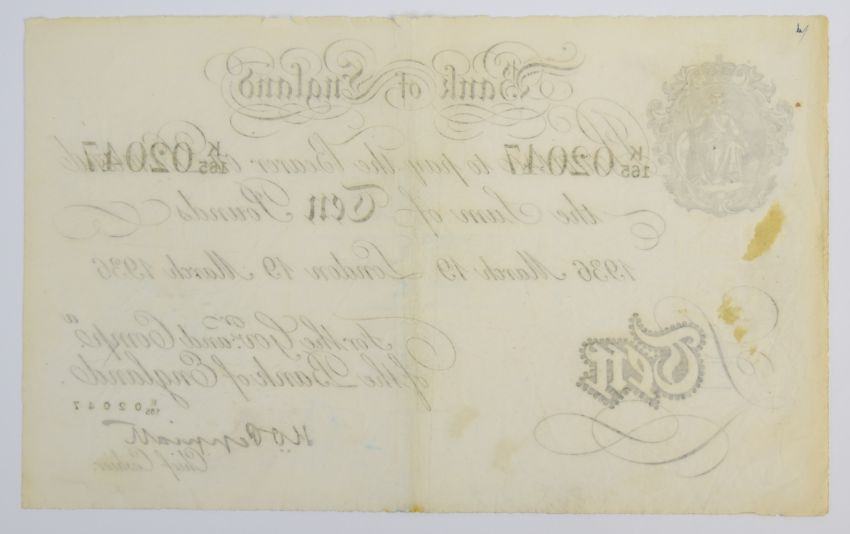 Bank of England
K/165 02047 K/165 02047
to pay the Bearer on Demand
the Sum of Ten Pounds
1936 March 19 London 19 March 1936
For the Gov.r and Comp.a
of the Bank of England.
K/165 02047
Ten
K.O. Peppiatt
Chief Cashier.